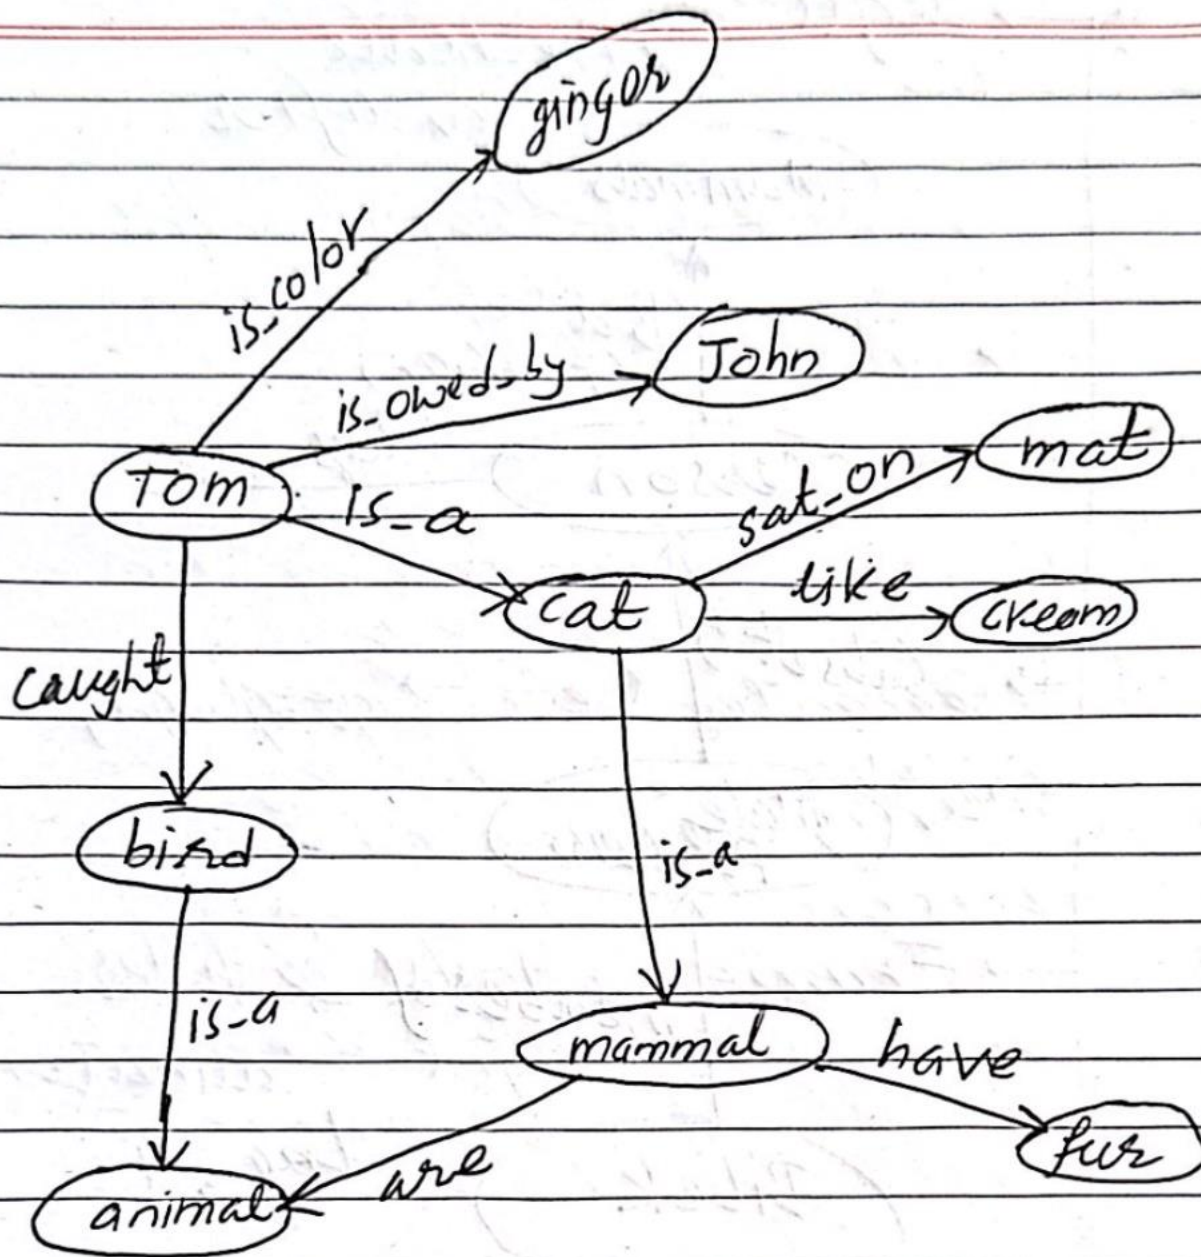 gingor
is_color
John
is_owed_by
mat
Tom
is_a
sat_on
like
cat
cream
caught
bird
is_a
is_a
mammal
have
fur
are
animal